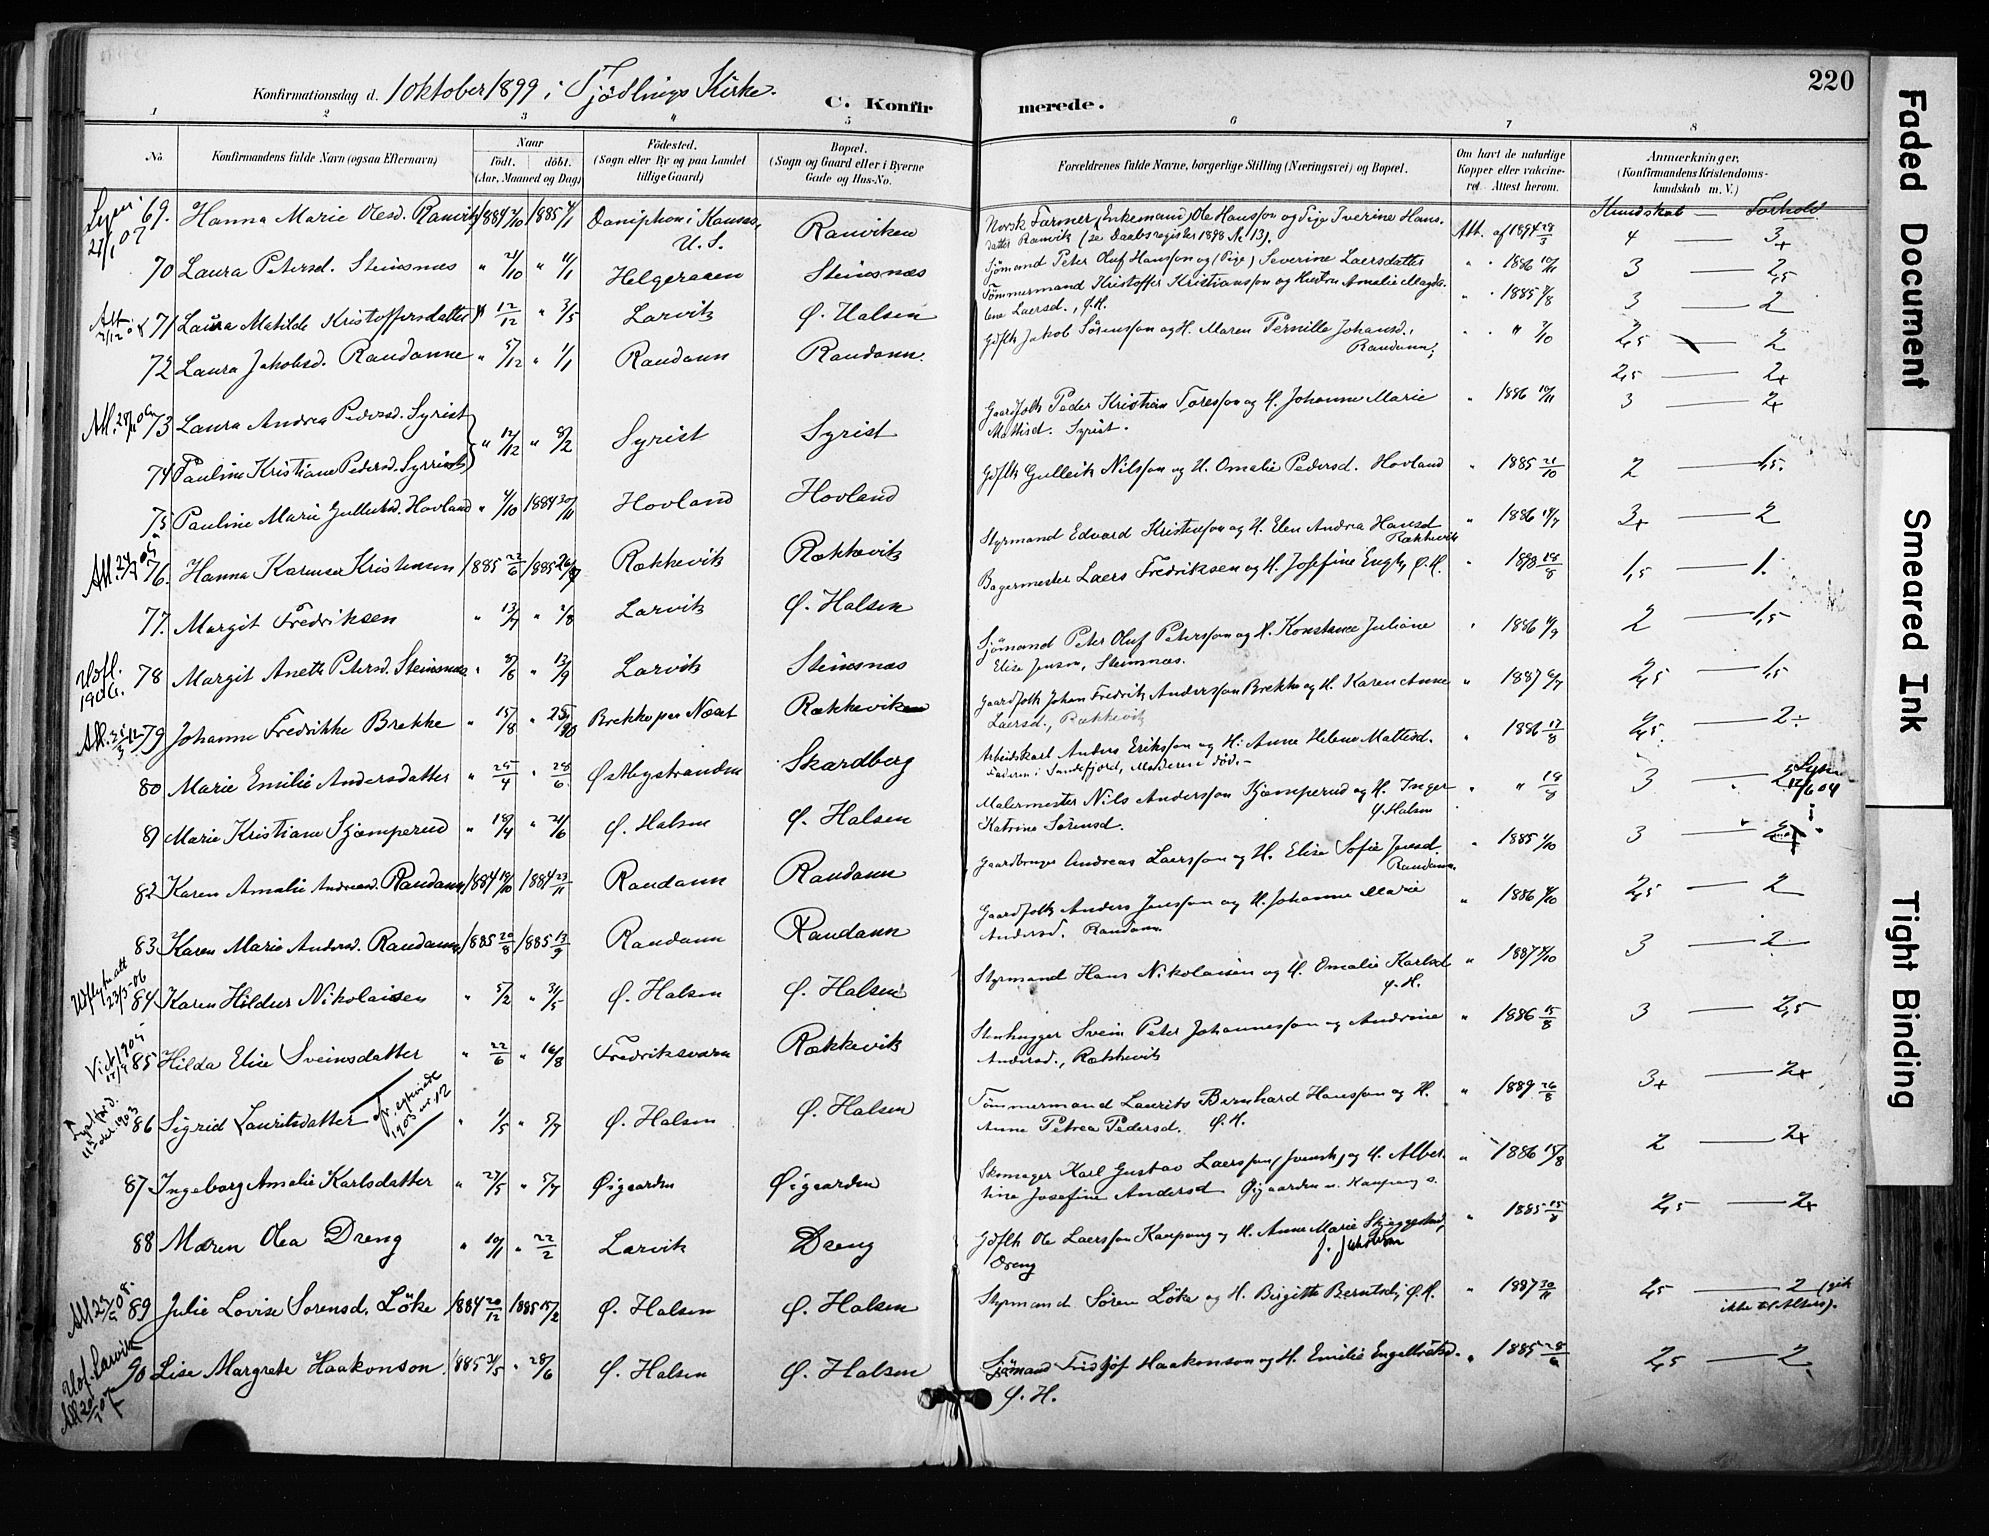 220
Konfirmationsdag d. 1 Oktober 1899 i Tjödlings Kirke.
C. Konfirmerede.
1 2 3 4 5 6 7 8
No.
Konfirmandens fulde Navn (ogsaa Efternavn)
Naar
födt. döbt.
(Aar, Maaned og Dag)
Födested.
(Sogn eller By og paa Landet
tillige Gaard)
Bopæl.
(Sogn og Gaard eller i Byerne
Gade og Hus-No.
Forældrenes fulde Navne, borgerlige Stilling (Næringsvei) og Bopæl.
Om havt de naturlige
Kopper eller vaccine-
ret. Attest herom.
Anmærkninger.
(Konfirmandens Kristendoms-
kundskab m. V.)
Kundskab — Forhold
69. Hanna Marie Olesd. Ranvik 1884 1885 Doniphon i Kansas, U. S. Ranviken
Norsk Farmer (Enkemand) Ole Hansson og Pige Iverine Hans-
datter Ranvik (se Daabsregister 1898 Nr 13). Att. af 1894 4 — 3+
70 Laura Petersd. Steinsnes " 21/10 " 11/1 Helgeraaen Steinsnæs
Sjömand Peter Oluf Hansson og (Pige) Severine Laersdatter " " 1886 3 — 2,5
71 Laura Matilde Kristoffersdatter 12/12 " 3/5 Larvik Ø. Halsen
Tömmermand Kristoffer Kristiansson og Hustru Amalie Magda-
lene Laersd., Ø.H. " " 1885 3 — 2
72 Laura Jakobsd. Raudanne " 5/12 " 1/1 Raudann Raudann.
Gdflk Jakob Sørensson og H. Maren Pernille Johansd.,
Raudann, 2,5 — 2
2,5 — 2+
73 Laura Andrea Pedersd. Syrist
" 12/12 " 8/2 Syrist Syrist
74 Pauline Kristiane Pedersd. Syrrist
Gaardfolk Peder Kristian Toresson og H. Johanne Marie
Mattisd. Syrist. " 1886 3 — 2+
75 Pauline Marie Gulliksd. Hovland " 4/10 1884 30/11 Hovland Hovland
Gdflk Gulleik Nilsson og H. Omalie Pedersd. Hovland " 1885 21/10 2 — 1,5
76. Hanna Karense Kristensen 1885 22/6 1885 Rækkevik Rækkevik
Styrmand Edvard Kristensson og H. Elen Andrea Hansd
Rækkevik " 1886 3+ — 2
77. Margit Fredriksen " 13/7 " 2/8 Larvik Ø. Halsen
Bagermester Laers Fredriksen og H. Josefine Engh, Ø.H. " 1,5 — 1.
78 Margit Anette Petersd. Steinsnæs " 8/6 " 13/9 Larvik Steinsnæs
Sjömand Peter Oluf Petersson og H. Konstance Juliane
Elise Jensen, Steinsnæs. " 1886 2 — 1,5
79 Johanne Fredrikke Brekke " 15/8 " Brekke per Næset Rækkeviken
Gaardfolk Johan Fredrik Andersson Brekke og H. Karen Anne
Laersd., Rækkevik " 1887 2,5 — 1,5
80 Marie Emilie Andersdatter " 25/4 " 28/6 Østbystranden Skardberg
Arbeidskarl Anders Eriksson og H. Anne Helene Mattisd.
Faderen i Sandefjord, Moderen i död. " 1886 17/8 2,5 — 2÷
81 Marie Kristiane Kjæmperud " 19/4 " 21/6 Ø. Halsen Ø. Halsen
Malermester Nils Andersson Kjæmperud og H. Inger
Katrine Sörensd. Ø.Halsen " " 3 —
82 Karen Amalie Andreasd. Raudann 1884 19/10 1884 23/11 Raudann Raudann
Gaardbruger Andreas Laersson og H. Elise Sofie Jensd.
Raudann. " 1885 3 —
83 Karen Marie Andersd. Raudann 1885 20/8 1885 13/9 Raudann Raudann
Gaardfolk Anders Jensson og H. Johanne Marie
Andersd. Raudann " 1886 2,5 — 2
84 Karen Hildur Nikolaisen " 5/2 " 31/5 Ø. Halsen Ø. Halsen
Styrmand Hans Nikolaisen og H. Omalie Karlsd
Ø.H. " 1887 3 — 2
85 Hilda Elise Sveinsdatter " 22/6 " 16/8 Fredriksværn Rækkevik
Stenhugger Svein Peter Johannesson og Andrine
Andersd., Rækkevik " 1886 15/8 3 — 2,5
86 Sigrid Lauritsdatter " 1/5 " 5/7 Ø. Halsen Ø. Halsen
Tömmermand Laurits Bernhard Hansson og H.
Anne Petrea Pedersd. Ø.H. " 1889 26/8 3+ — 2+
87 Ingeborg Amalie Karlsdatter " 27/5 " 5/7 Øigaarden Øigaarden
Skomager Karl Gustav Laersson (svensk) og H. Alber-
tine Josefine Andersd Øigaarden u. Kaupang s. " 1886 15/8 2 — 2+
88 Maren Olea Dreng " 10/1 " 22/2 Larvik Dreng
Gdflk Ole Laersson Kaupang og H. Anne Marie
Dreng " 1885 2,5 — 2+
89 Julie Lovise Sorensd. Löke 1884 20/12 1885 15/2 Ø. Halsen Ø. Halsen
Styrmand Sören Löke og H. Birgitte Berntsd, Ø.H. " 1887 2,5 — 2 (gik
ikke til Alters).
90 Lise Margrete Haakonson. 1885 31/5 " 28/6 Ø. Halsen Ø. Halsen
Sjömand Fridtjof Haakonson og H. Emilie Engelbrektsd.
Ø. H. " 1885 2,5 — 2
Faded Document
Smeared Ink
Tight Binding